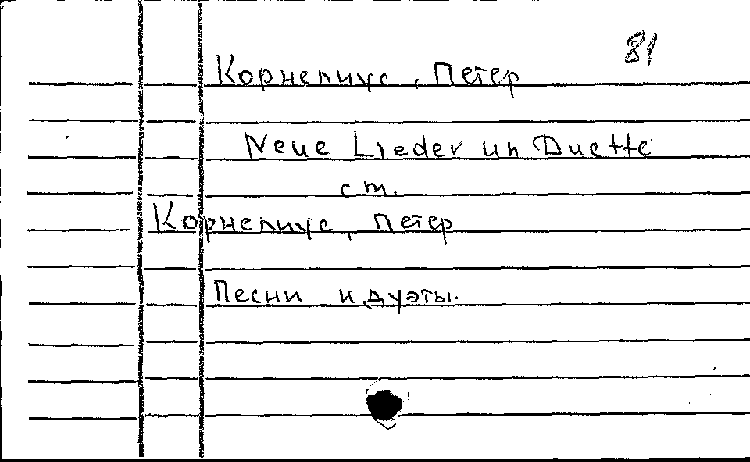 81
Корнелиус, Петер
Neue Lieder un Duette
ст.
Корнелиус, Петер
Песни и дуэты.